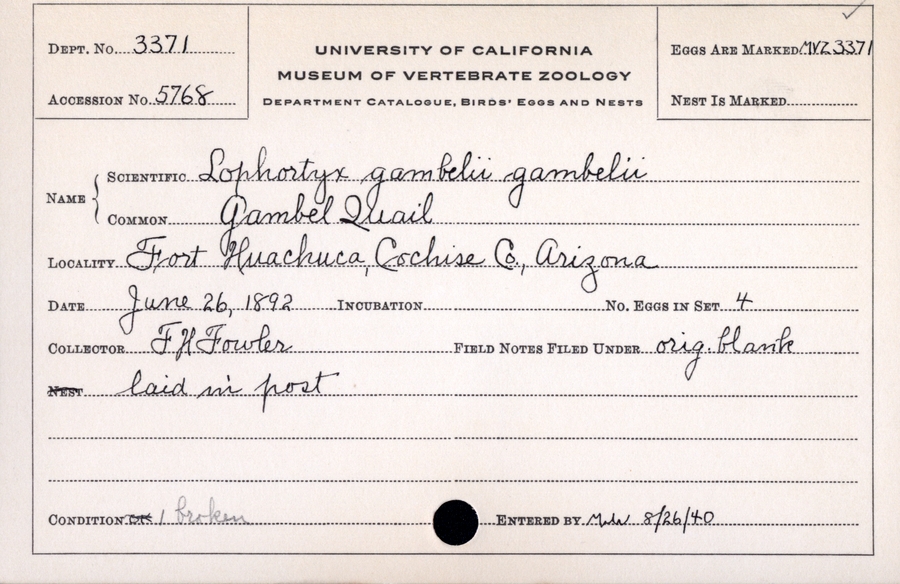 DEPT. No. 3371
ACCESSION No. 5768
UNIVERSITY OF CALIFORNIA
MUSEUM OF VERTEBRATE ZOOLOGY
DEPARTMENT CATALOGUE, BIRDS' EGGS AND NESTS
EGGS ARE MARKED MVZ 3371
NEST IS MARKED
NAME
SCIENTIFIC Lophortyx gambelii gambelii
COMMON Gambel Quail
LOCALITY Fort Huachuca, Cochise Co., Arizona
DATE June 26, 1892 INCUBATION No. EGGS IN SET 4
COLLECTOR F H Fowler FIELD NOTES FILED UNDER orig. blank
NEST laid in post
CONDITION 1 broken ENTERED BY 8/26/40